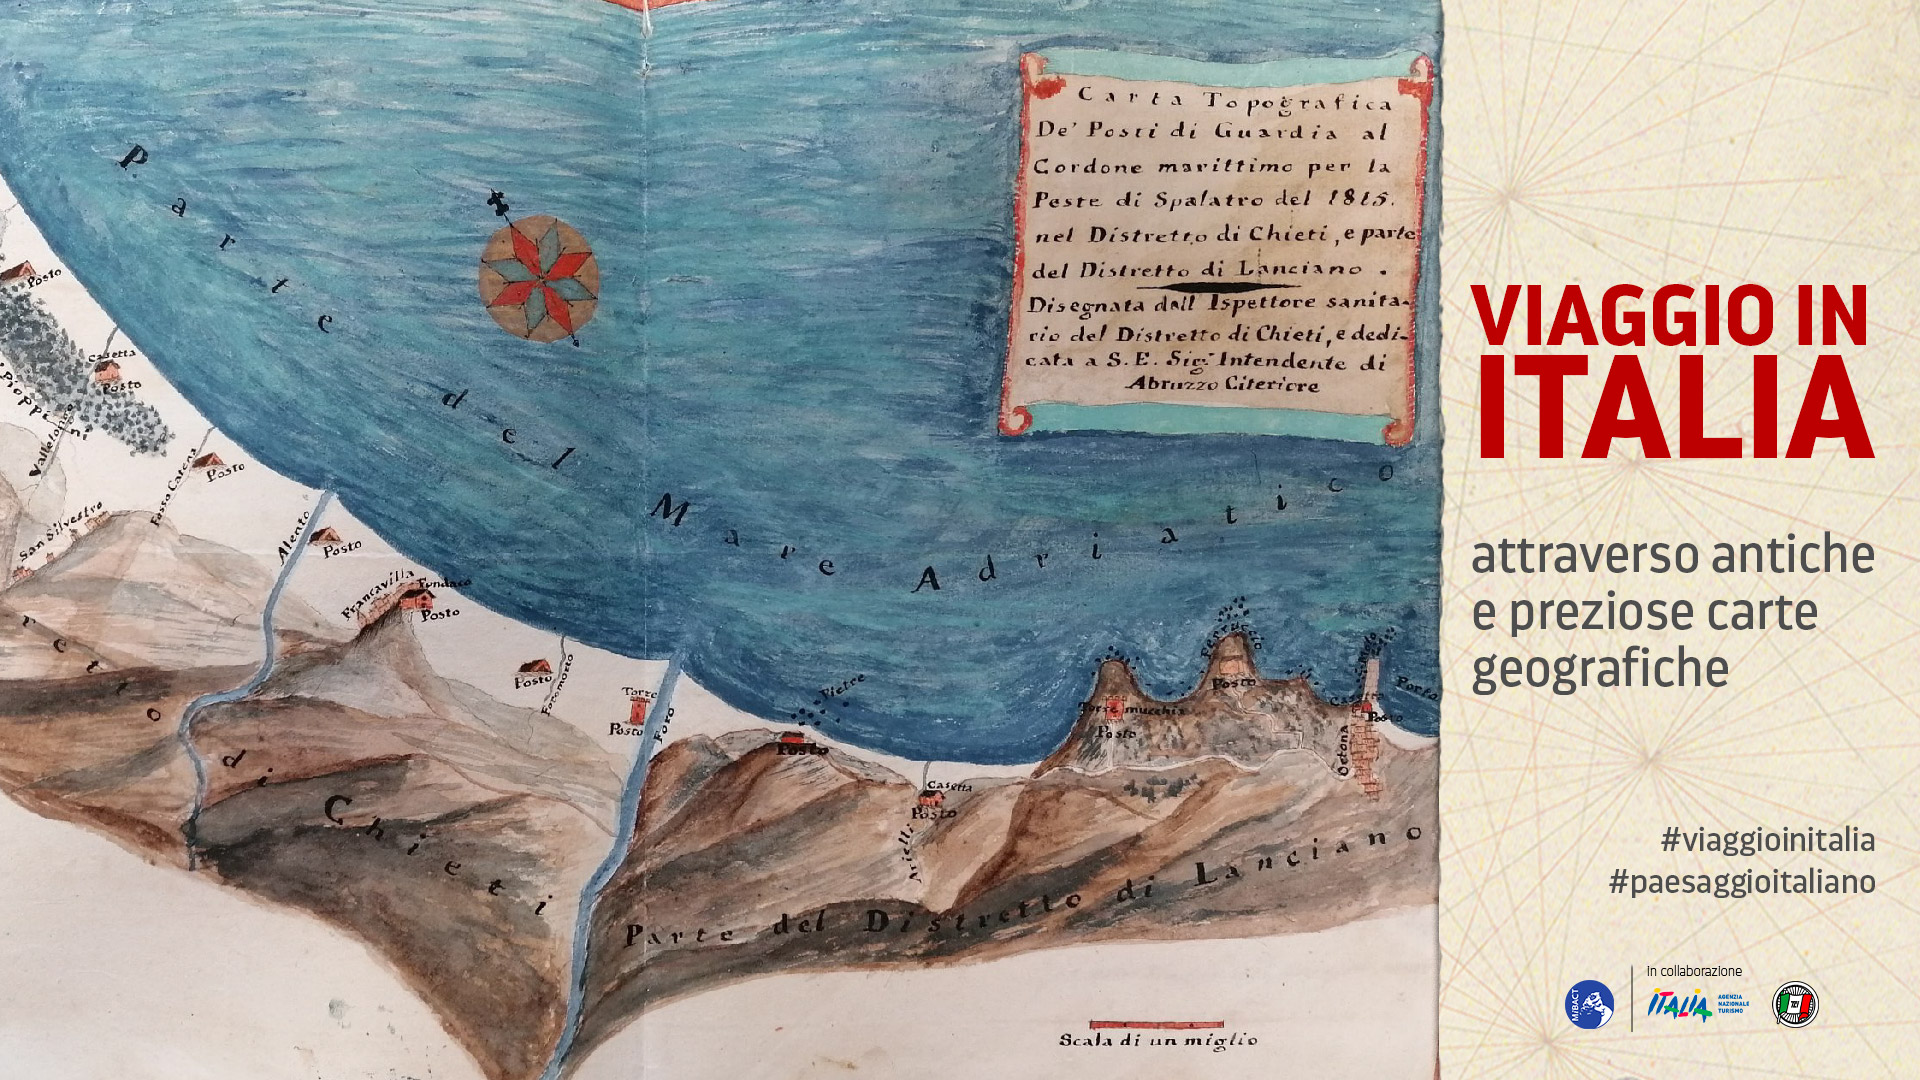 Carta Topografica
De' Posti di Guardia al
Cordone marittimo per la
Peste di Spalatro del 1815.
nel Distretto di Chieti, e parte
del Distretto di Lanciano.
Disegnata dall Ispettore sanita-
rio del Distretto di Chieti, e dedi-
cata a S.E. Sig.r Intendente di
Abruzzo Citeriore
Parte del Mare Adriatico
Posto
Casetta
Posto
Pioppi
ni
Vallelonga
Fosso Catena
Posto
San Silvestro
Alento
Posto
Francavilla
Fundaco
Posto
Posto
Foromorto
Torre
Posto
Foro
Pietre
Posto
Casetta
Posto
Arielli
Torre mucchia
Posto
Ferruccio
Posto
Molo
Casetta
Posto
Porto
Ortona
retto di Chieti
Parte del Distretto di Lanciano
Scala di un miglio
VIAGGIO IN
ITALIA
attraverso antiche
e preziose carte
geografiche
#viaggioinitalia
#paesaggioitaliano
In collaborazione
MiBACT
ITALIA
AGENZIA
NAZIONALE
TURISMO
TCI